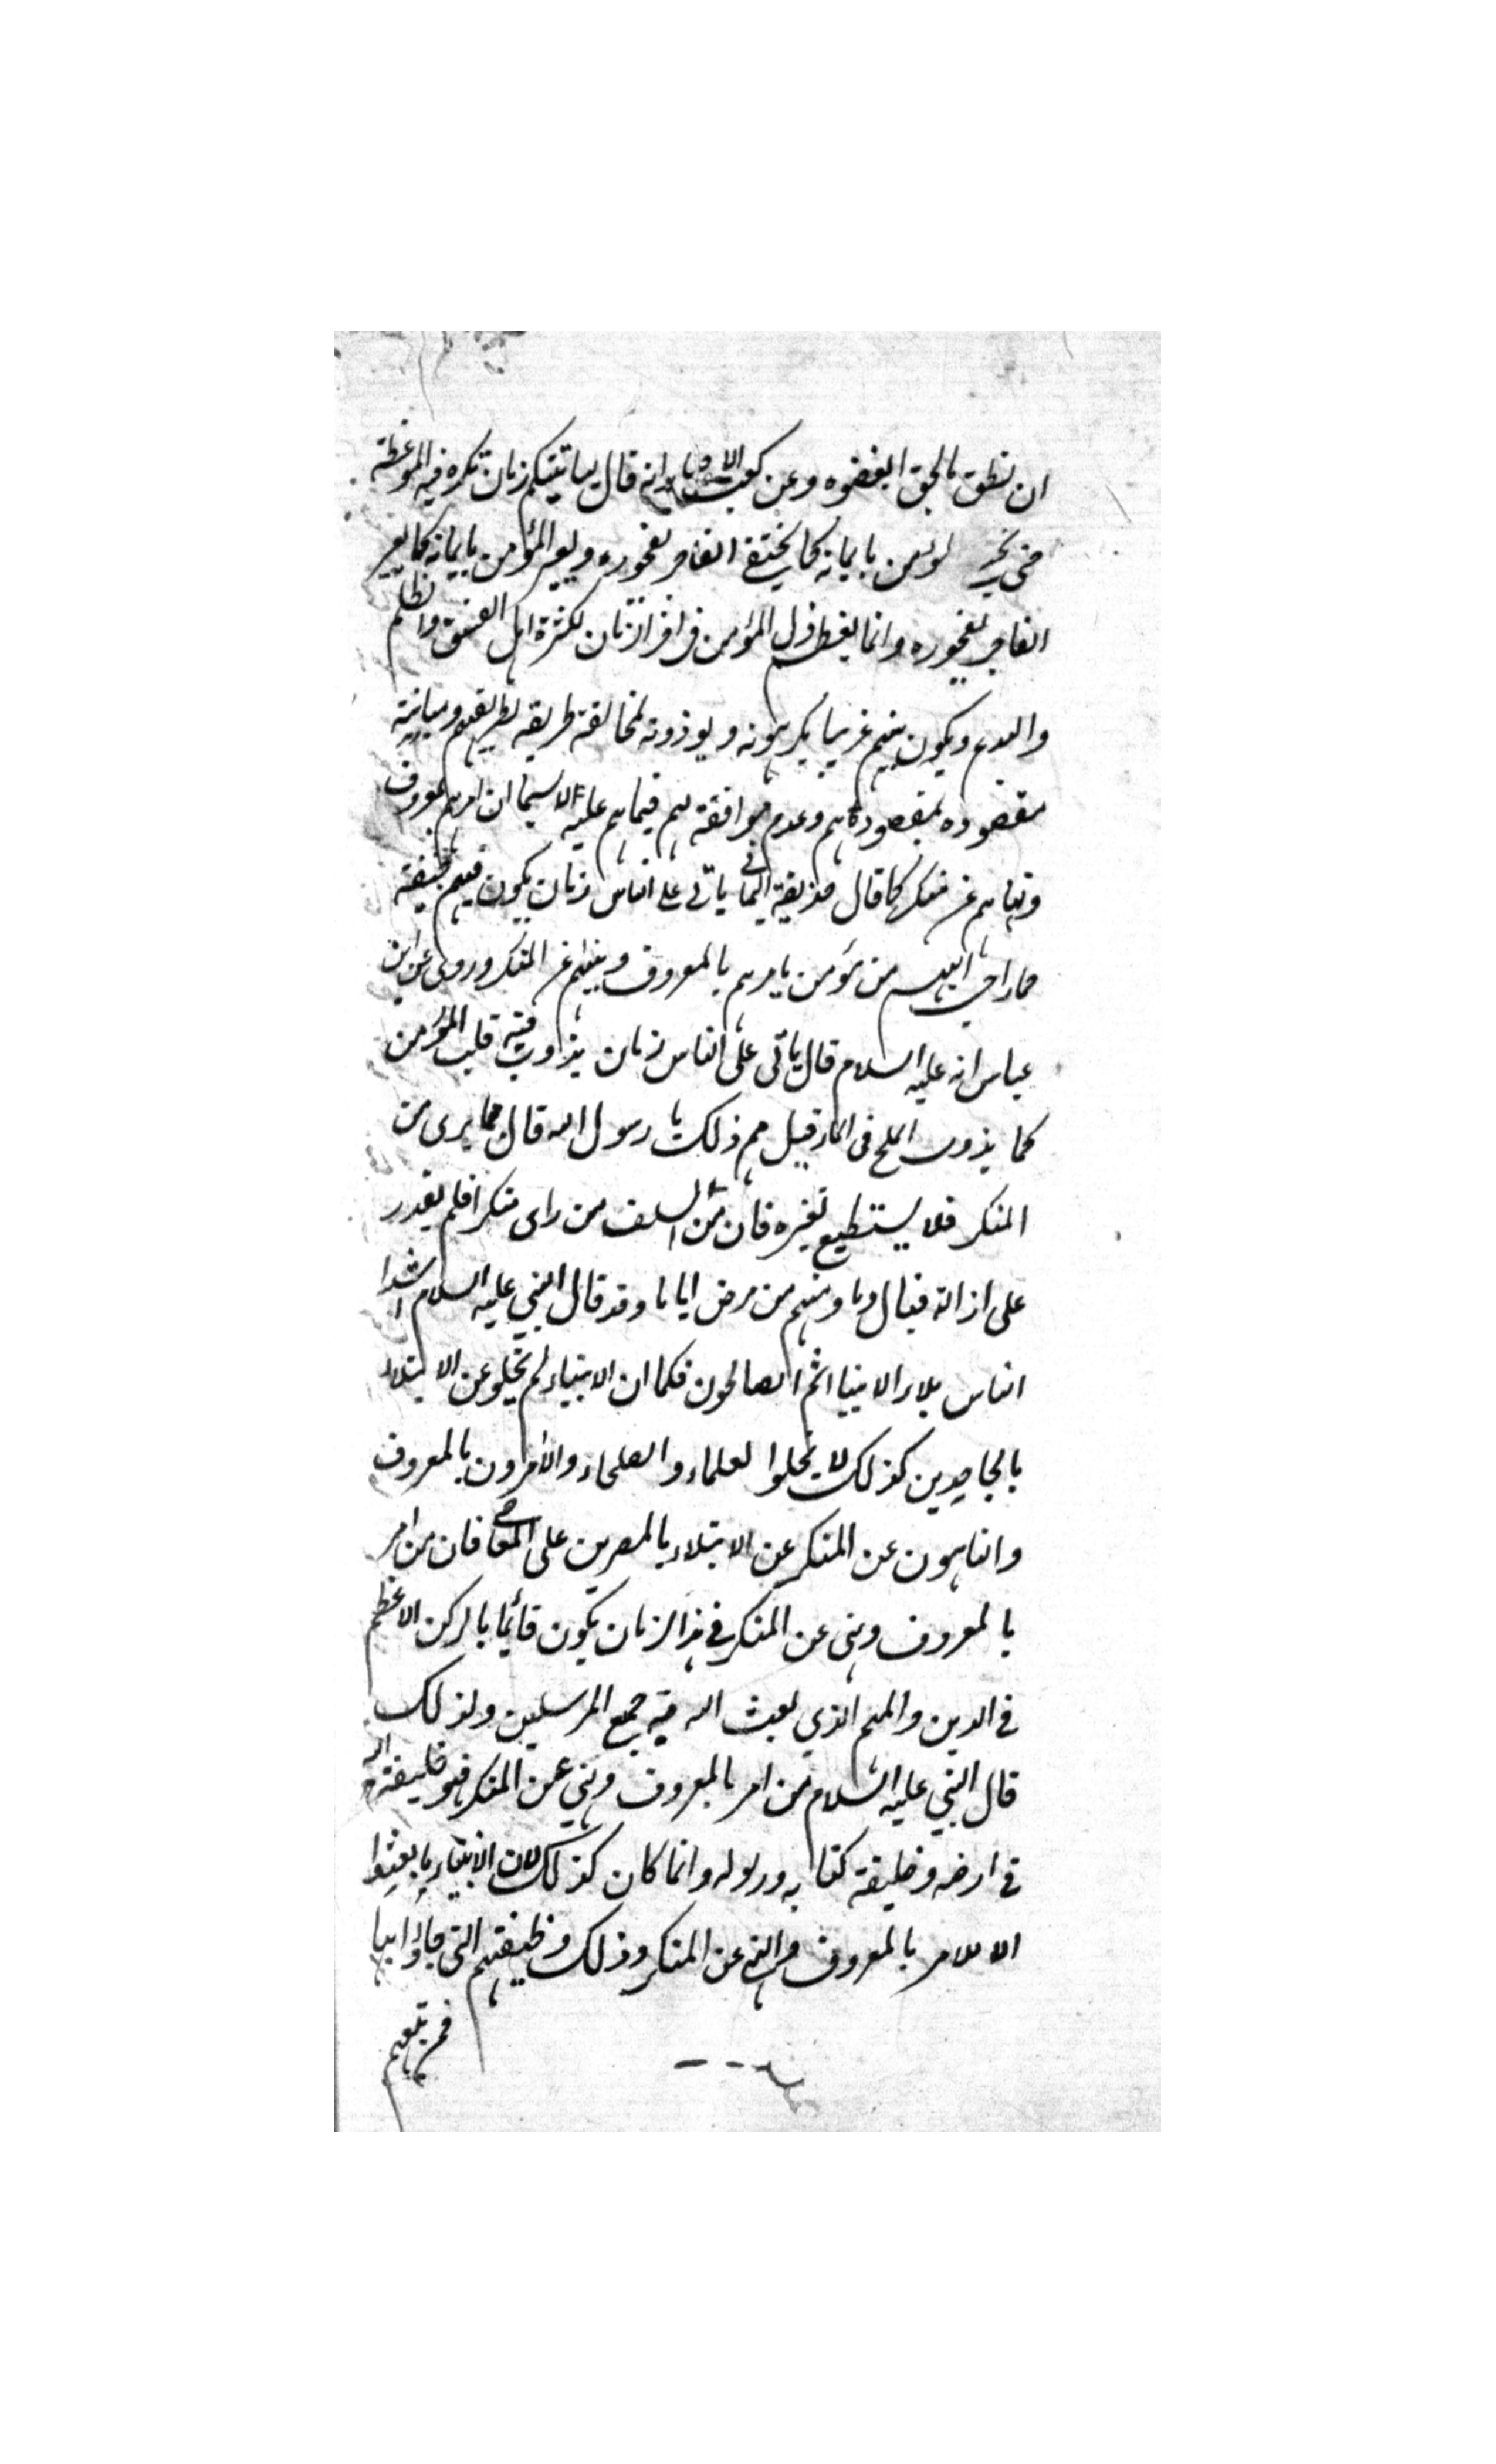 ان نطق بالحق ابغضوه وعن كعب الاحبار انه قال لياتينكم زمان تكره فيه الموعظة
حتى المؤمن بايمانه كما يختفى الفاجر بفجوره ويعير المؤمن بايمانه كما يعير
الفاجر بفجوره وانما يعظ ذل المؤمن فى اخر الزمان لكثرة اهل الفسق والظلم
والبدع ويكون بينهم غريبا يكرهونه ويوذونه لمخالفة طريقه لطريقهم ومباينة
مقصوده لمقصودهم وعدم موافقته لهم فيما هم عليه لاسيما ان امرهم بمعروف
ونهاهم عن منكر كما قال حذيفة اليمانى ياتى على الناس زمان يكون فيهم جيفة
حمار احب اليهم من مؤمن يامرهم بالمعروف وينهيهم عن المنكر وروى عن ابن
عباس انه عليه السلام قال ياتى على الناس زمان يذوب فيه قلب المؤمن
كما يذوب الملح فى الماء قيل مم ذلك يا رسول الله قال مما يرى من
المنكر فلا يستطيع تغيره فان من السلف من راى منكرا فلم يقدر
على ازالته فبال دما ومنهم من مرض اياما وقد قال النبي عليه السلام اشد
الناس بلاء الانبياء ثم الصالحون فكما ان الانبياء لم يخلو عن الابتلاء
بالجاحدين كذلك لا يخلوا لعلماء والصلحاء والآمرون بالمعروف
والناهون عن المنكر عن الابتلاء بالمصرين على المعاصى فان من امر
بالمعروف ونهى عن المنكر في هذا الزمان يكون قائما بالركن الاعظم
في الدين والمهم الذي بعث الله فيه جميع المرسلين ولذلك
قال النبي عليه السلام من امر بالمعروف ونهي عن المنكر فهو خليفة الله
في ارضه وخليفة كتابه ورسوله وانما كان كذلك لان الانبياء ما بعثوا
الا للامر بالمعروف والنهي عن المنكر وذلك وظيفتهم التي جاؤا بها
فمن تبعهم